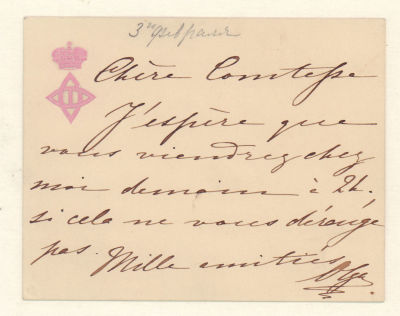 Chère Comtesse
J'espère que
vous viendrez chez
moi demain à 2h.
si cela ne vous dérange
pas. Mille amitiés
Olga